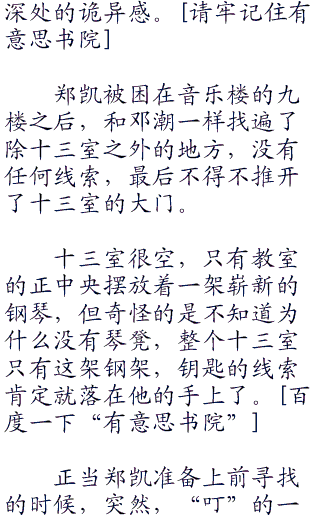 深处的诡异感。[请牢记住有
意思书院]
郑凯被困在音乐楼的九
楼之后，和邓潮一样找遍了
除十三室之外的地方，没有
任何线索，最后不得不推开
了十三室的大门。
十三室很空，只有教室
的正中央摆放着一架崭新的
钢琴，但奇怪的是不知道为
什么没有琴凳，整个十三室
只有这架钢架，钥匙的线索
肯定就落在他的手上了。[百
度一下“有意思书院”]
正当郑凯准备上前寻找
的时候，突然，“叮”的一